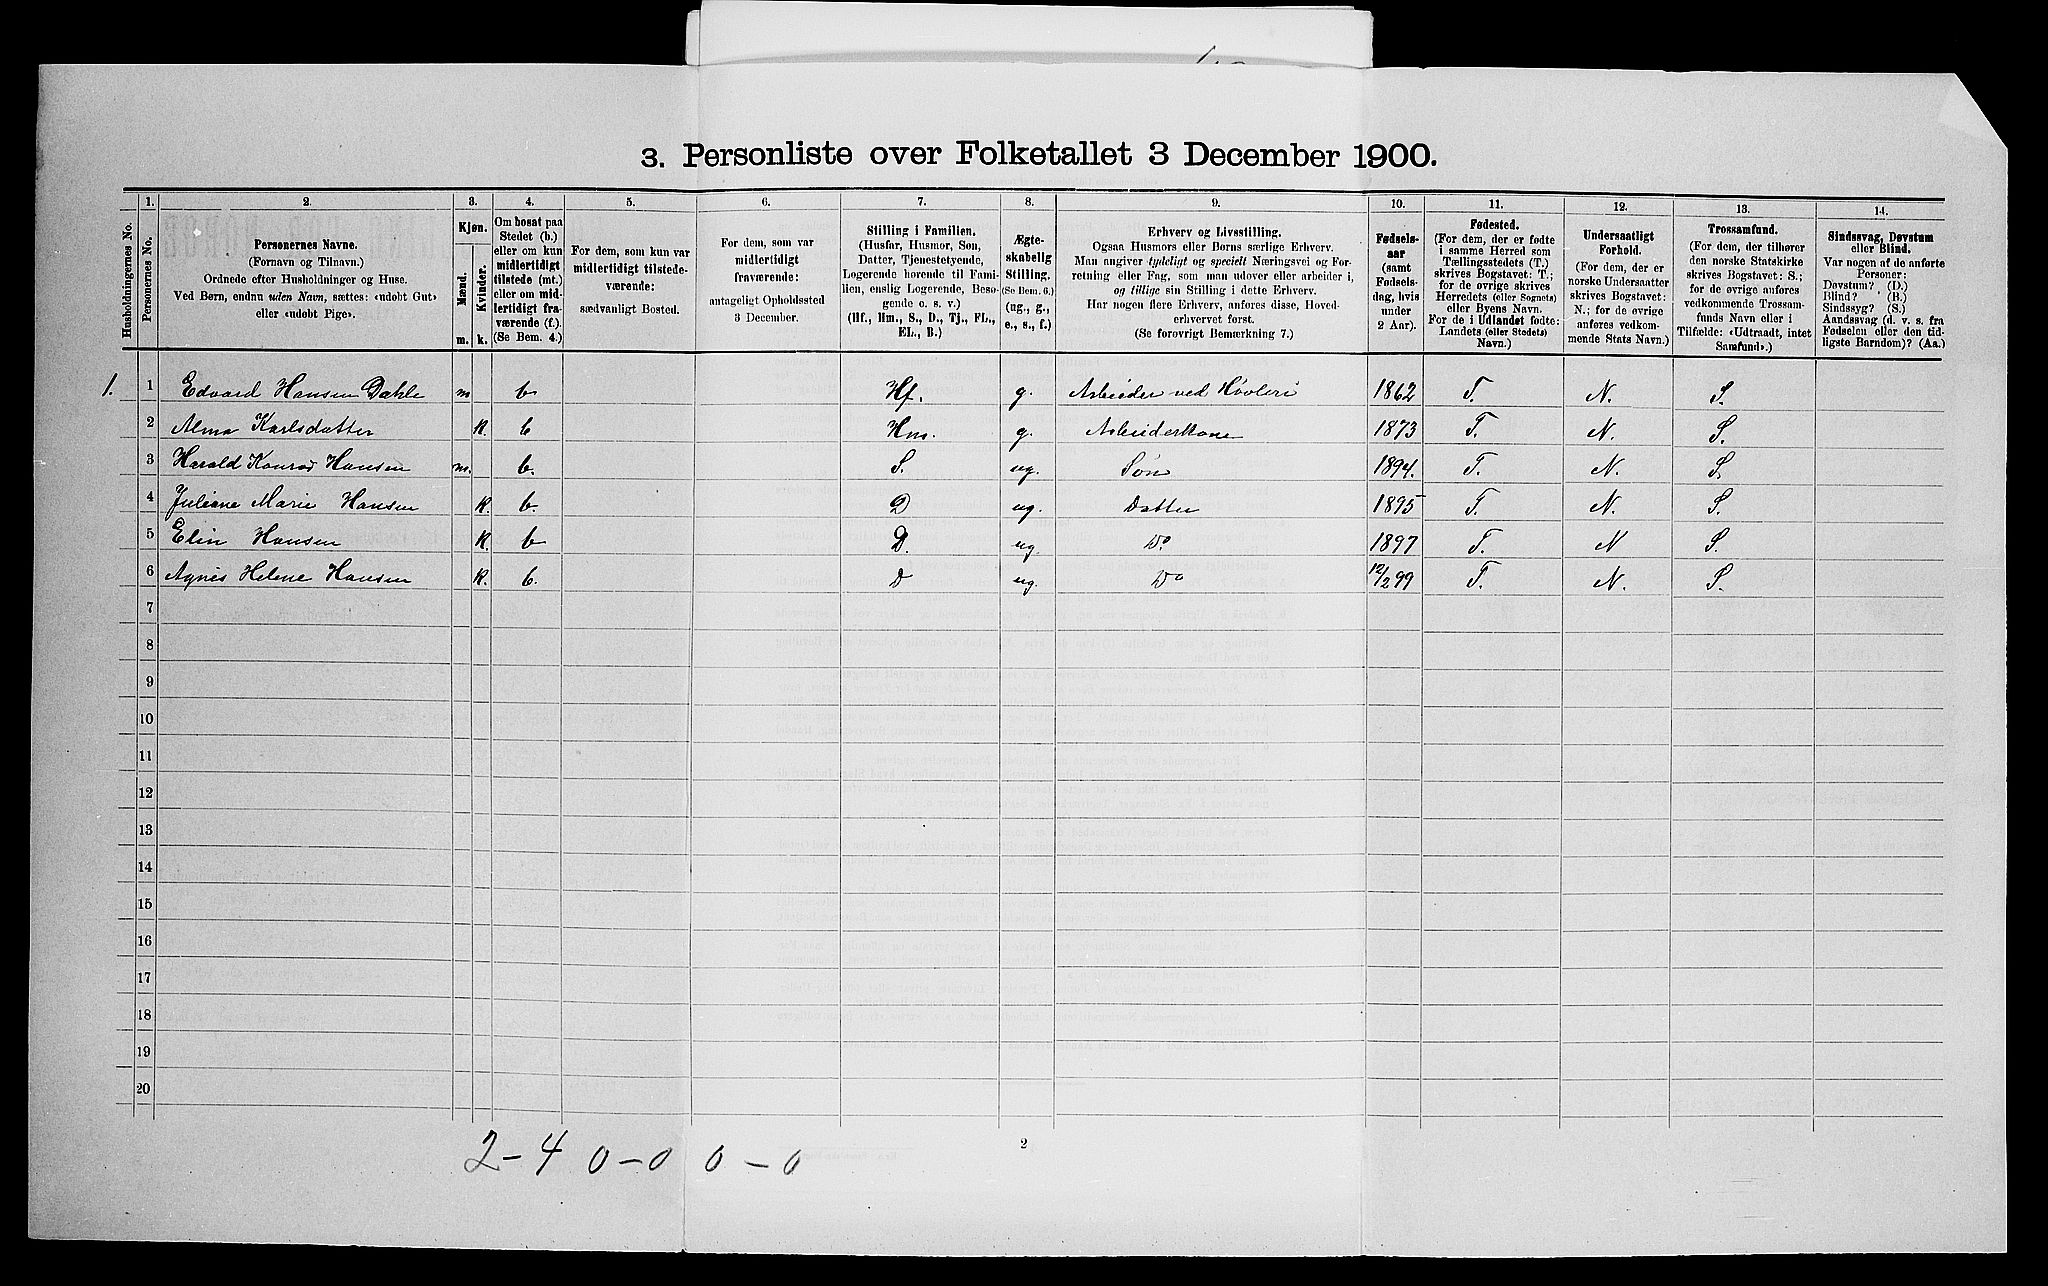 3. Personliste over Folketallet 3 December 1900.
Husholdningernes No.
1.
Personernes No.
2.
Personernes Navne.
(Fornavn og Tilnavn.)
Ordnede efter Husholdninger og Huse.
Ved Børn, endnu uden Navn, sættes: «udøbt Gut»
eller «udøbt Pige».
3.
Kjøn.
Mænd.
Kvinder.
m. k.
4.
Om bosat paa
Stedet (b.)
eller om kun
midlertidigt
tilstede (mt.)
eller om mid-
lertidigt fra-
værende (f.)
(Se Bem. 4.)
5.
For dem, som kun var
midlertidigt tilstede-
værende:
sædvanligt Bosted.
6.
For dem, som var
midlertidigt
fraværende:
antageligt Opholdssted
3 December.
7.
Stilling i Familien.
(Husfar, Husmor, Søn,
Datter, Tjenestetyende,
Logerende hørende til Fami-
lien, enslig Logerende, Besø-
gende o. s. v.)
(Hf., Hm., S., D., Tj., FL.,
EL., B.)
8.
Ægte-
skabelig
Stilling.
(Se Bem. 6.)
(ug., g.,
e., s., f.)
9.
Erhverv og Livsstilling.
Ogsaa Husmors eller Børns særlige Erhverv.
Man angiver tydeligt og specielt Næringsvei og For-
retning eller Fag, som man udover eller arbeider i,
og tillige sin Stilling i dette Erhverv.
Har nogen flere Erhverv, anføres disse, Hoved-
erhvervet først.
(Se forøvrigt Bemærkning 7.)
10.
Fødsels-
aar
(samt
Fødsels-
dag, hvis
under
2 Aar).
11.
Fødested.
(For dem, der er fødte
i samme Herred som
Tællingsstedets (T.)
skrives Bogstavet: T.;
for de øvrige skrives
Herredets (eller Sognets)
eller Byens Navn.
For de i Udlandet fødte:
Landets (eller Stedets)
Navn.)
12.
Undersaatligt
Forhold.
(For dem, der er
norske Undersaatter
skrives Bogstavet:
N.; for de øvrige
anføres vedkom-
mende Stats Navn.)
13.
Trossamfund.
(For dem, der tilhører
den norske Statskirke
skrives Bogstavet: S.;
for de øvrige anføres
vedkommende Trossam-
funds Navn eller i
Tilfælde: «Udtraadt, intet
Samfund».)
14.
Sindssvag, Døvstum
eller Blind.
Var nogen af de anførte
Personer:
Døvstum? (D.)
Blind? (B.)
Sindssyg? (S.)
Aandssvag (d. v. s. fra
Fødselen eller den tid-
ligste Barndom)? (Aa.)
1. 1 Edvard Hansen Dahle m b Hf. g. Arbeider ved Høvleri 1862 T. N. S.
2 Alma Karlsdatter K. b Hm. g. Arbeiderkone 1873 T. N. S.
3 Harald Konrad Hansen m. b. S. ug. Søn 1894. T. N. S.
4 Juliane Marie Hansen K. b. D ug. Datter 1895 T. N. S.
5 Elin Hansen K. b D. ug. Do 1897 T. N S.
6 Agnes Helene Hansen K. b. D ug. Do 12/2 99 T. N. S.
7
8
9
10
11
12
13
14
15
16
17
18
19
20
2
2-4 0-0 0-0